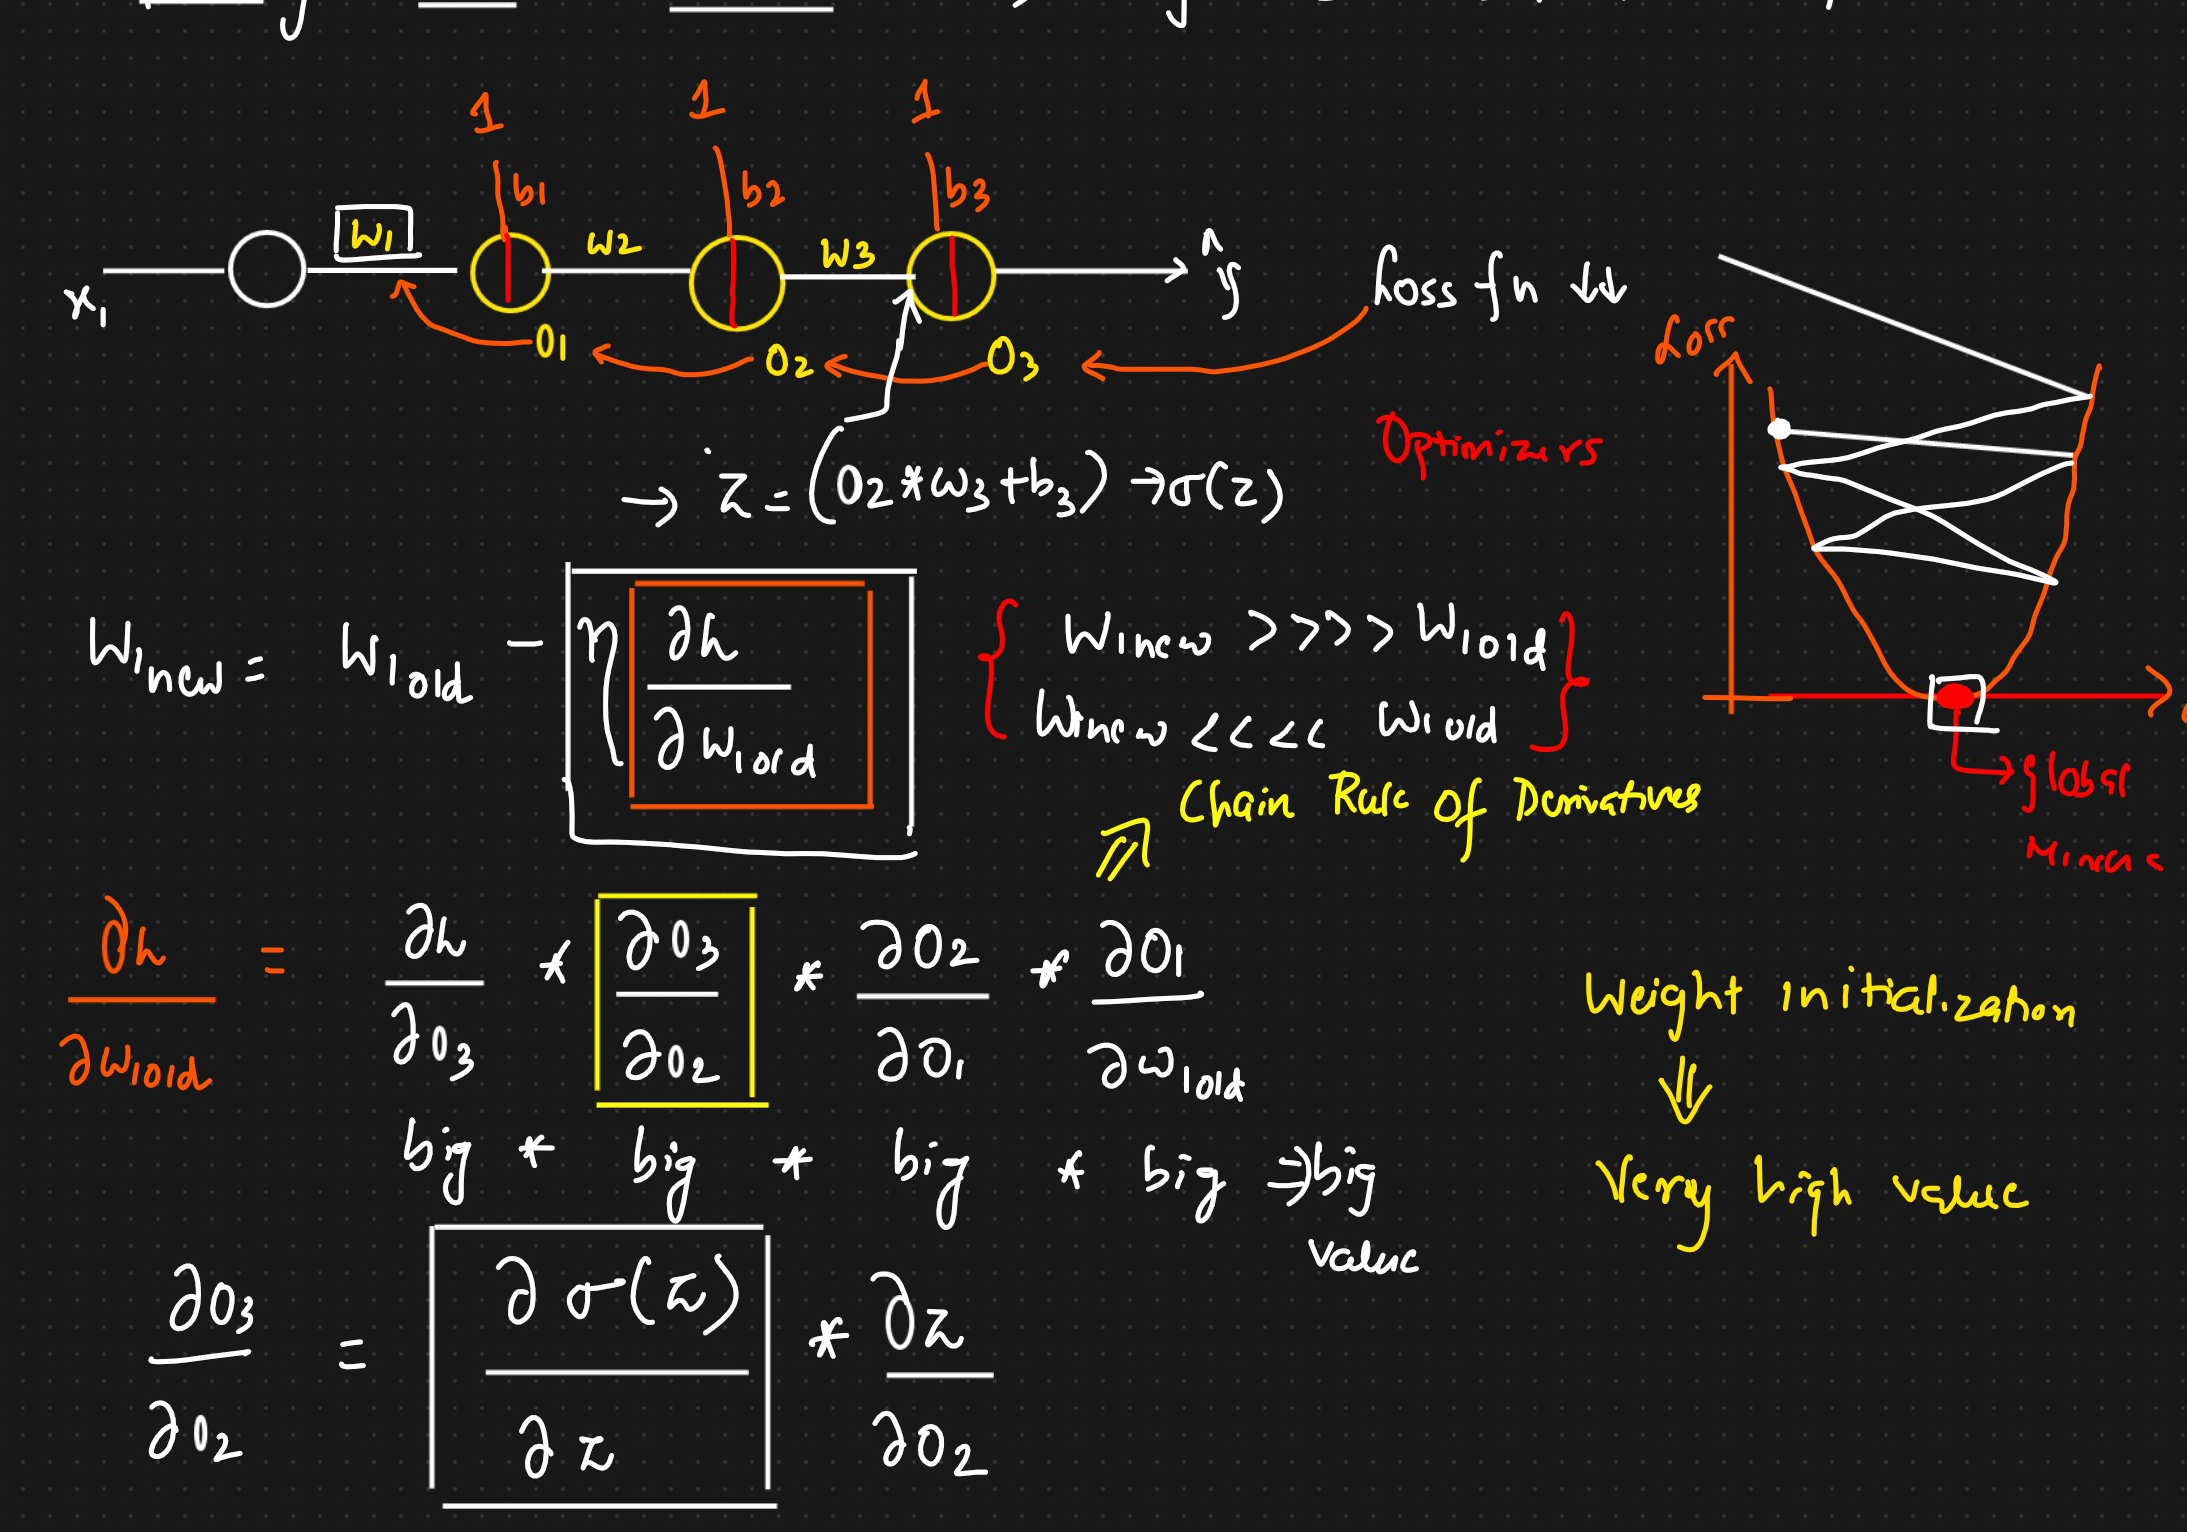 1 1 1
b1 b2 b3
W1 W2 W3
x1 ŷ Loss fn ↓↓
O1 O2 O3
Loss
Optimizers
→ z = (O2 * W3 + b3) → σ(z)
W1new = W1old - η ∂h / ∂W1old
W1new >>>> W1old
W1new <<<< W1old
Global
Minima
Chain Rule of Derivatives
∂h / ∂W1old = ∂h / ∂O3 * ∂O3 / ∂O2 * ∂O2 / ∂O1 * ∂O1 / ∂W1old
big * big * big * big ⇒ big
value
Weight initialization
⇓
Very high value
∂O3 / ∂O2 = ∂σ(z) / ∂z * ∂z / ∂O2